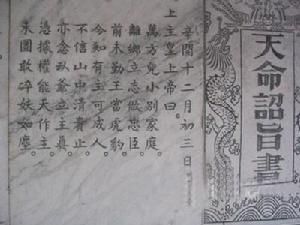 天命詔旨書
辛開十二月初三日
上主皇上帝曰
萬方兒小別家庭
離鄉立志做忠臣
前未勤王當虎豹
今知有主可成人
不信山中清貴止
亦念魚爺立主真
憑據權能天作主
永團敢碎妖如塵